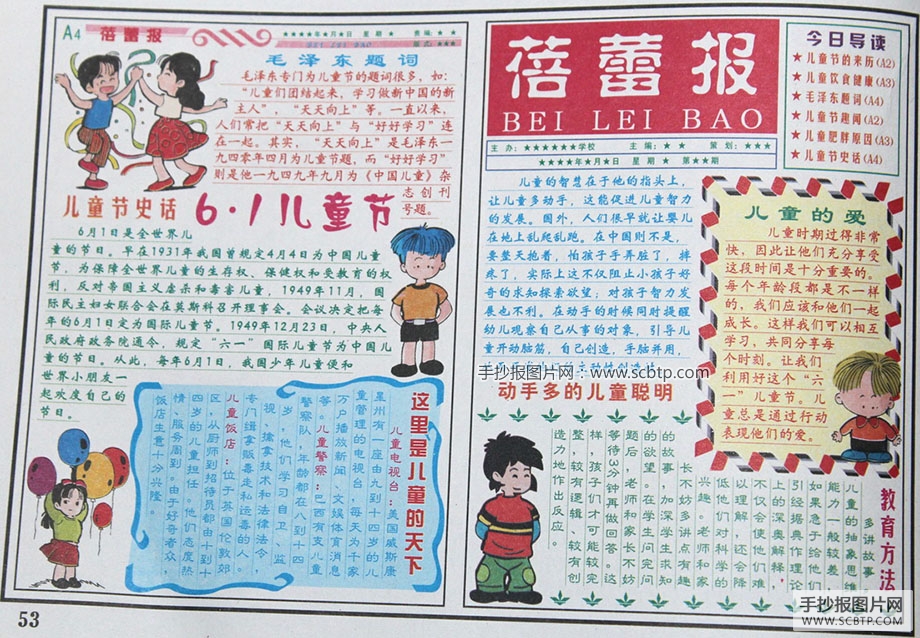 A4 蓓蕾报
★★★★年★月★日 星期★ 责编:★★
BEI LEI BAO
毛泽东题词
毛泽东专门为儿童节的题词很多，如:
“儿童们团结起来，学习做新中国的新
主人”，“天天向上”等。一直以来，
人们常把“天天向上”与“好好学习”连
在一起。其实，“天天向上”是毛泽东一
九四零年四月为儿童节题，而“好好学习”
则是他一九四九年九月为《中国儿童》杂
志创刊
号题。
儿童节史话
6·1儿童节
6月1日是全世界儿
童的节日。早在1931年我国曾规定4月4日为中国儿童
节，为保障全世界儿童的生存权、保健权和受教育的权
利，反对帝国主义虐杀和毒害儿童，1949年11月，国
际民主妇女联合会在莫斯科召开理事会。会议决定把每
年的6月1日定为国际儿童节。1949年12月23日，中央人
民政府政务院通令，规定“六一”国际儿童节为中国儿
童的节日。从此，每年6月1日，我国少年儿童便和
世界小朋友一
起欢度自己的
节日。
这里是儿童的天下
儿童电视台：美国威斯康
星州有一座由九到十四岁的儿
童管理的电视台，每天为千家
万户播放新闻、文娱体育消息
等。儿童警察：巴西有支儿童
警察队，年龄都在八到十四
岁，他们学习自卫、监
视、擒拿技术和法律法令，
专门缉拿贩毒走私运毒的人。
儿童饭店：位于英国伦敦郊
区，从厨师到招待员都由十到十
四岁的儿童担任。他们态度热
情、服务周到。由于好奇者众，
饭店生意十分兴隆
53
蓓蕾报
BEI LEI BAO
今日导读
★儿童节的来历(A2)
★儿童饮食健康(A3)
★毛泽东题词(A4)
★儿童节趣闻(A2)
★儿童肥胖原因(A3)
★儿童节史话(A4)
主办：★★★★★★学校 主编：★★ 策划：★★★
★★★★年★月★日 星期★ 第★★期
儿童的智慧在于他的指头上，
让儿童多动手，这能促进儿童智力
的发展。国外，人们很早就让婴儿
在地上乱爬乱跑。在中国则不是，
要整天抱着，怕孩子手弄脏了，摔
疼了，实际上这不仅阻止小孩子好
奇的求知探索欲望；对孩子智力发
展也不利。在动手的时候同时提醒
幼儿观察自己从事的对象，引导儿
童开动脑筋，自己创造，手脑并用，
手抄报图片网 www.scbtp.com
动手多的儿童聪明
儿童的爱
儿童时期过得非常
快，因此让他们充分享受
这段时间是十分重要的。
每个年龄段都是不一样
的，我们应该和他们一起
成长。这样我们可以相互
学习，共同分享每
个时刻。让我们
利用好这个“六
一”儿童节。儿
童总是通过行动
表现他们的爱。
教育方法
多讲故事
儿童的抽象思维
能力一般较差，
如果急于给他们
引经据典作理论
上的深奥解释，
不仅会使他们难
以理解，还会降
低他们学习的
兴趣。老师和家
长不妨多讲点有趣
的故事，加深学生求知
的欲望。在学生问完问
题后，老师和家长不妨
等待3分钟再做回答。这
样，孩子们才可能较完
整、较有逻辑、较有创
造力地作出反应。
手抄报图片网
WWW.SCBTP.COM